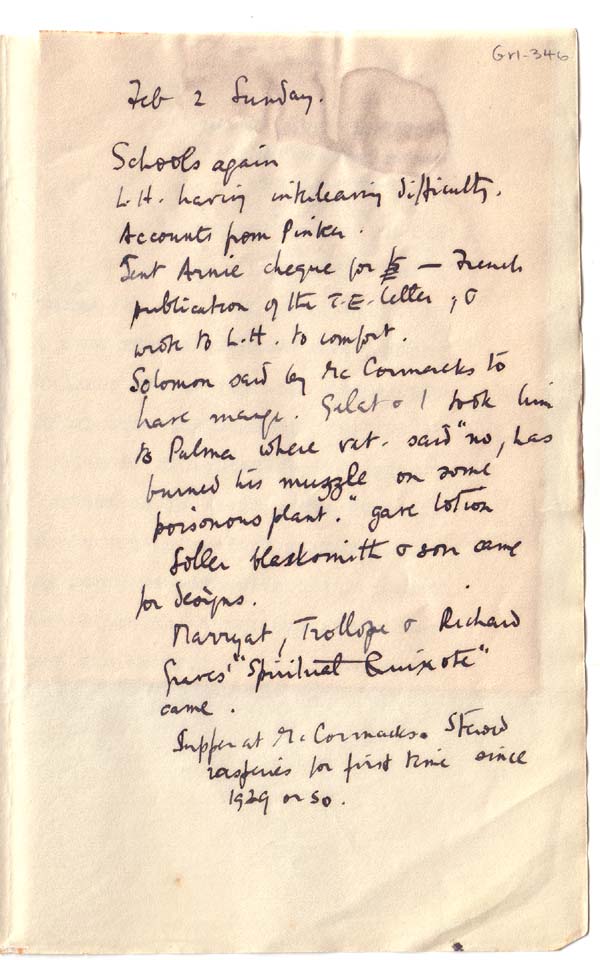 Gr1-346
Feb 2 Sunday.
Schools again
L.H. having interleaving difficulty.
Accounts from Pinker.
Sent Arnie cheque for £5 — French
publication of the T.E. letter, &
wrote to L.H. to comfort.
Solomon said by McCormacks to
have mange. Gelat & I took him
to Palma where vet. said "no, has
burned his muzzle on some
poisonous plant." gave lotion
Soller blacksmith & son came
for designs.
Marryat, Trollope & Richard
Graves' "Spiritual Quixote"
came.
Supper at McCormacks. Stewed
rasperies for first time since
1929 or so.